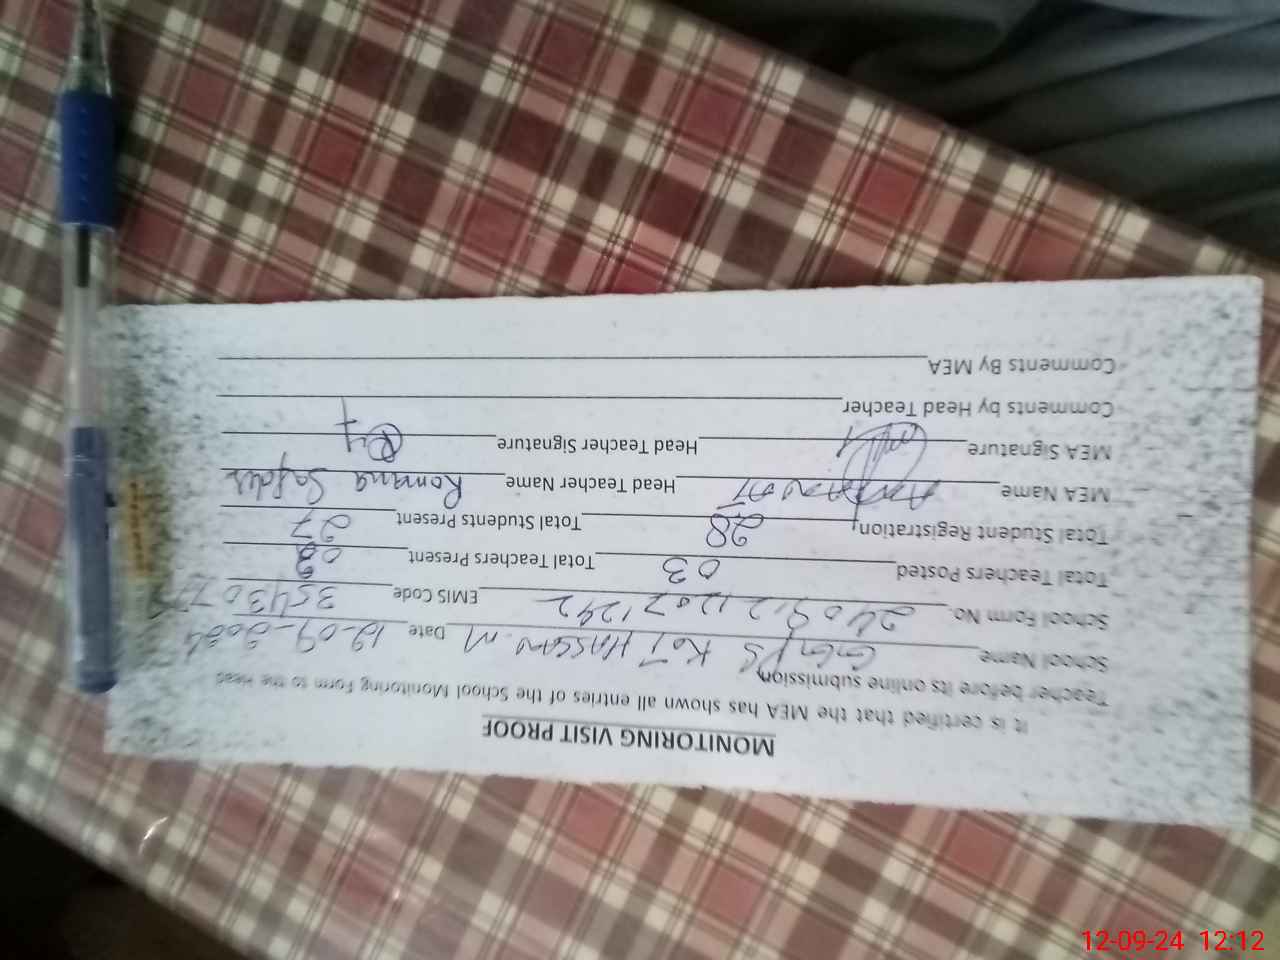 MONITORING VISIT PROOF
It is certified that the MEA has shown all entries of the School Monitoring Form to the Head
Teacher before its online submission
School Name GGPS KOT HASSAN M Date 12-09-2024
School Form No. 24091212071292 EMIS Code 354307
Total Teachers Posted 03 Total Teachers Present
Total Student Registration 28 Total Students Present 27
MEA Name Head Teacher Name Romana Safder
MEA Signature Head Teacher Signature
Comments by Head Teacher
Comments By MEA
12-09-24 12:12